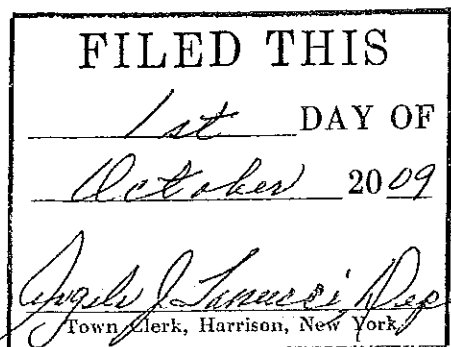 FILED THIS
1st DAY OF
October 2009
Angelo J. Ianucci, Dep
Town Clerk, Harrison, New York